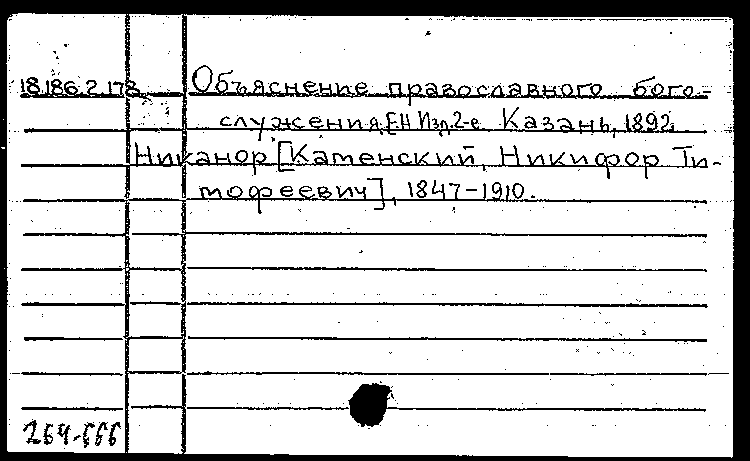 18.186.2.178 Объяснение православного бого-
служения. [Н Изд. 2-е Казань, 1892
Никанор [Каменский, Никифор Ти-
мофеевич], 1847-1910.
264-666